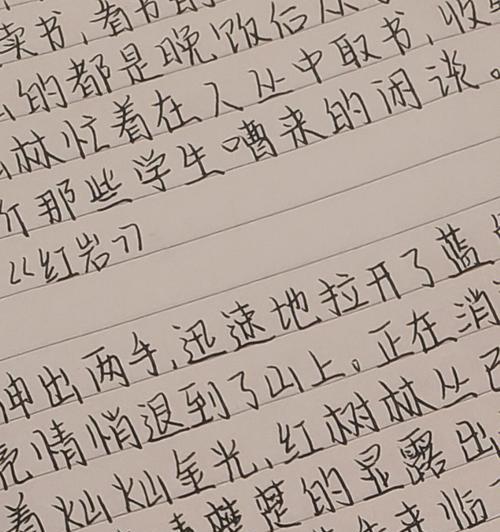 读书,看书
的都是晚饭后从
林忙着在人丛中取书,收
那些学生嘈来的闲谈。
《红岩》
伸出两手,迅速地拉开了蓝
亮情悄退到了山上。正在消
着灿灿金光,红树林丛已
清楚楚的显露出
来临